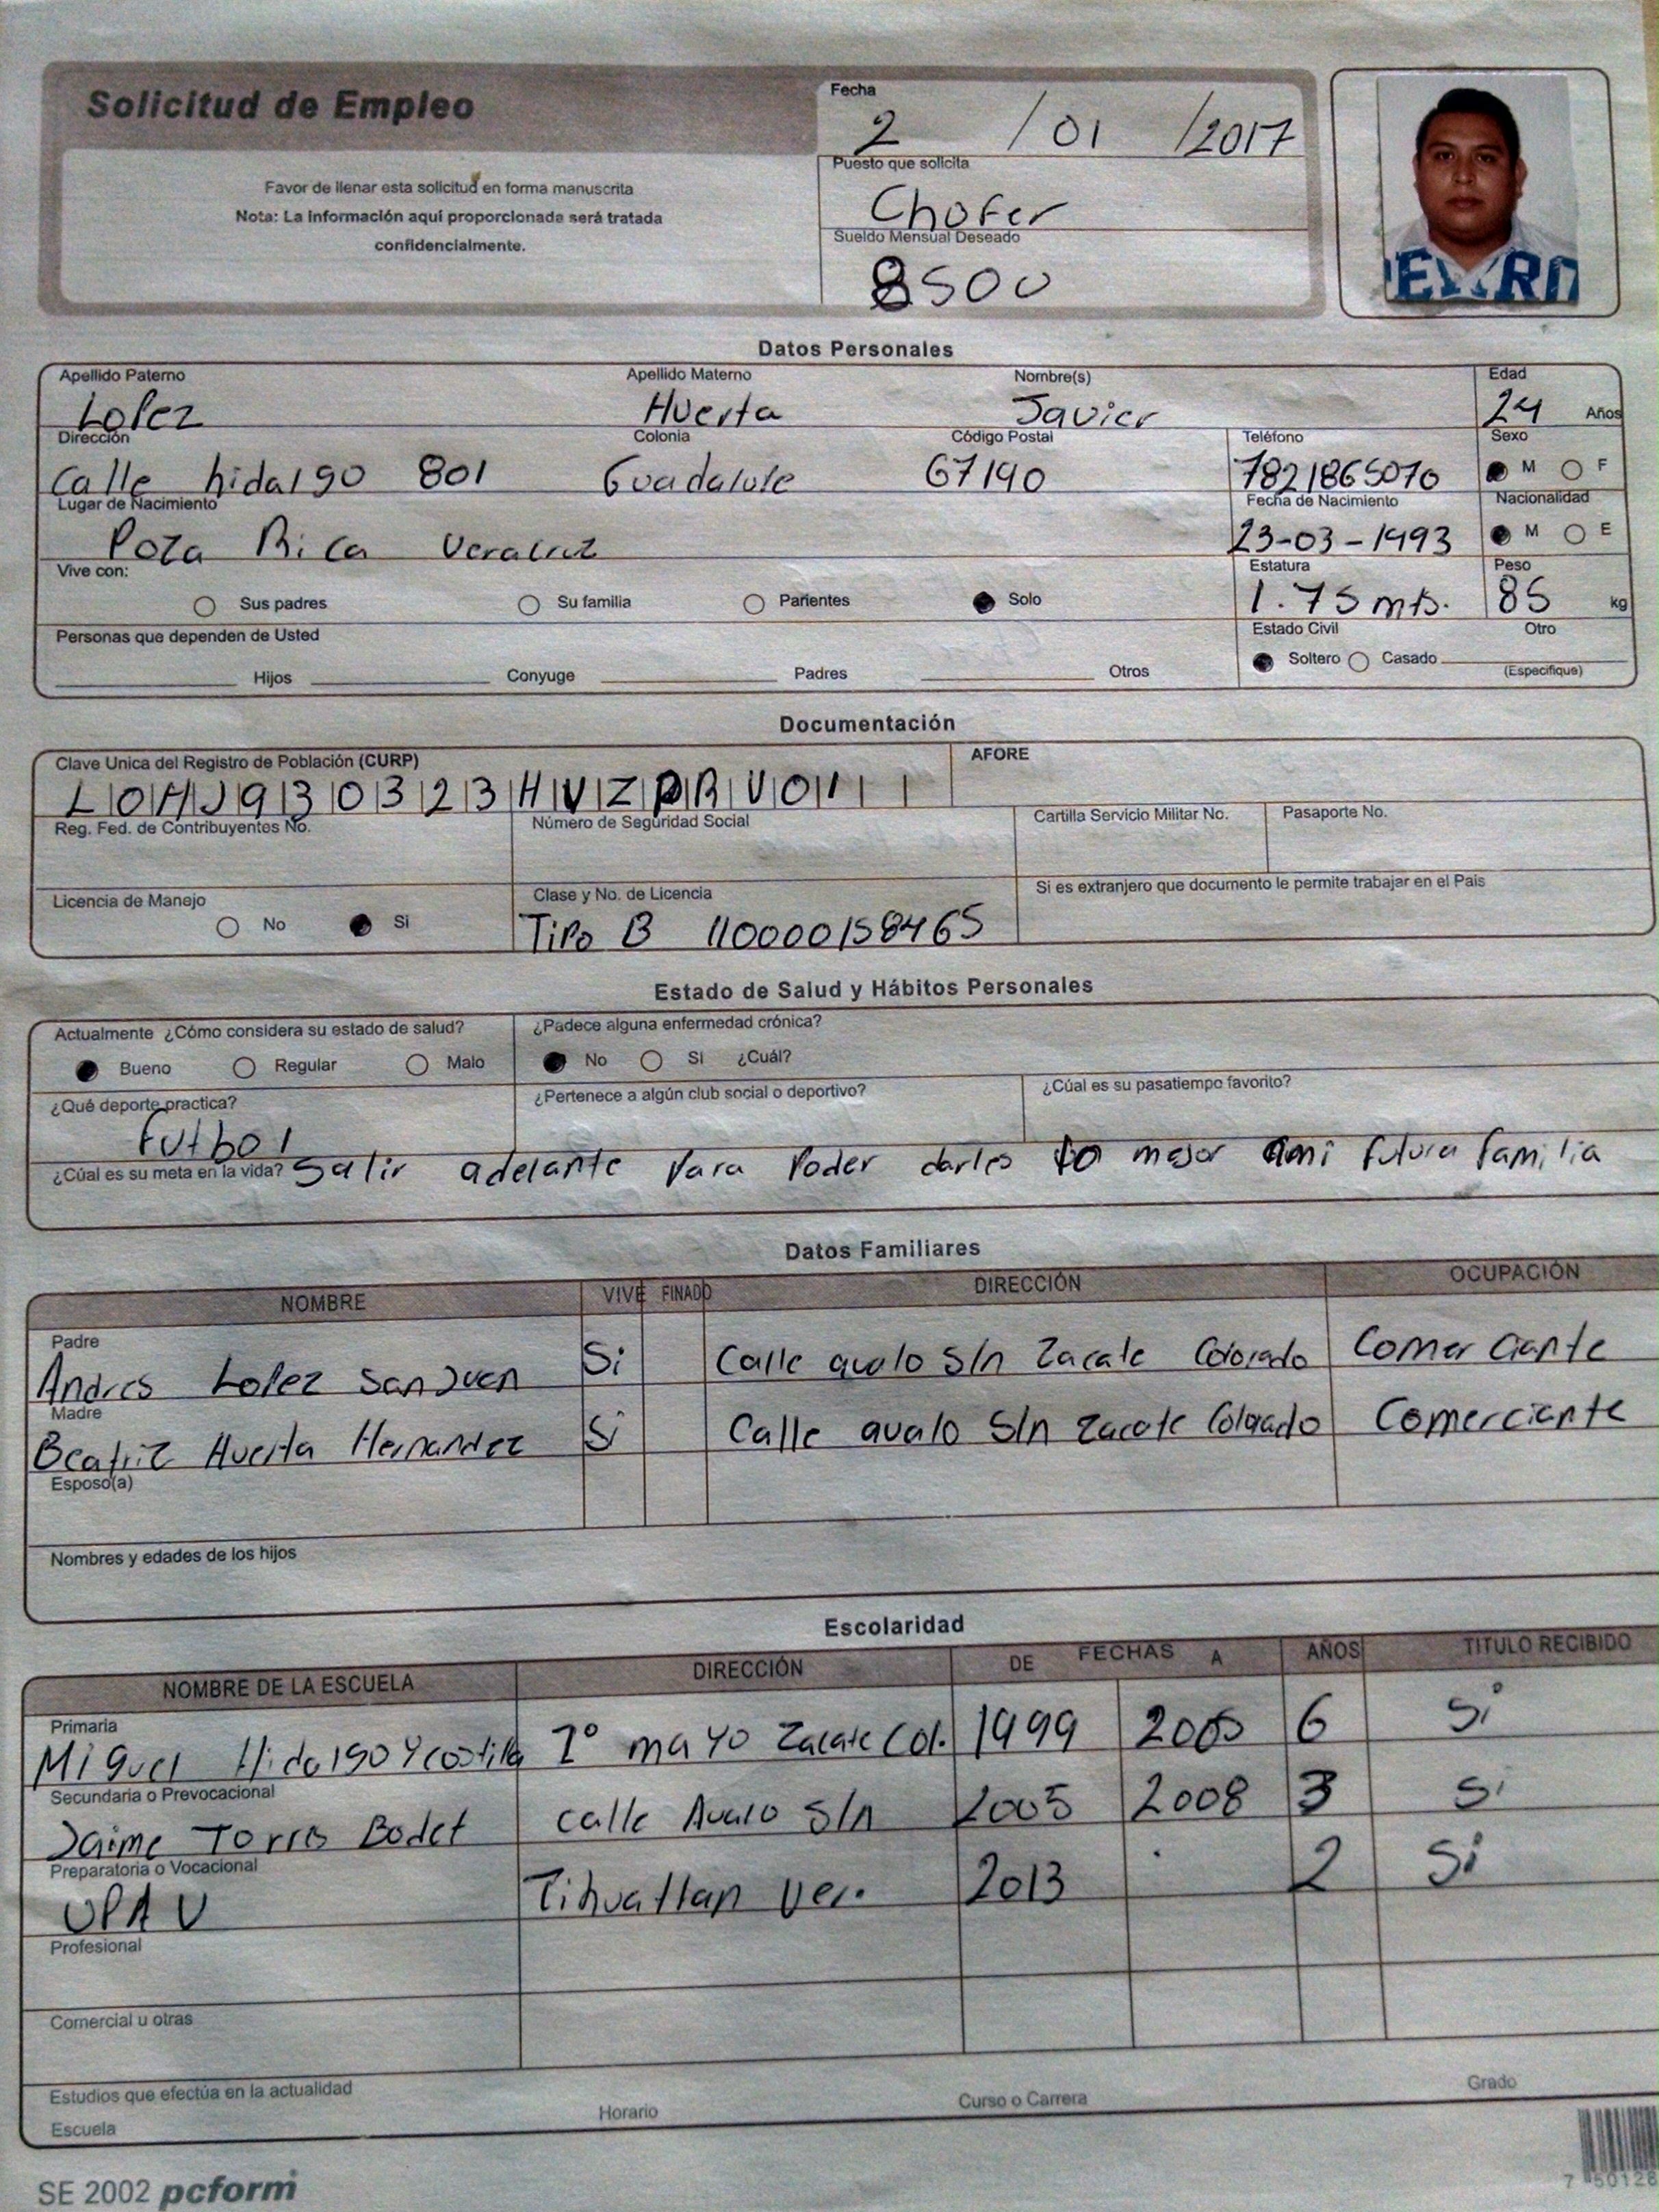 Solicitud de Empleo
Favor de llenar esta solicitud en forma manuscrita
Nota: La información aquí proporcionada será tratada
confidencialmente.
Fecha
2 / 01 / 2017
Puesto que solicita
Chofer
Sueldo Mensual Deseado
8500
Datos Personales
Apellido Paterno Apellido Materno Nombre(s) Edad
Lopez Huerta Javier 24 Años
Dirección Colonia Código Postal Teléfono Sexo
Calle hidalgo 801 Guadalupe 67190 7821865070 M F
Lugar de Nacimiento Fecha de Nacimiento Nacionalidad
Poza Rica Veracruz 23-03-1993 M E
Vive con: Estatura Peso
Sus padres Su familia Parientes Solo 1.75 mts. 85 kg
Personas que dependen de Usted Estado Civil Otro
Hijos Conyuge Padres Otros Soltero Casado (Especifique)
Documentación
Clave Unica del Registro de Población (CURP) AFORE
LOHJ930323HVZPRV01
Reg. Fed. de Contribuyentes No. Número de Seguridad Social Cartilla Servicio Militar No. Pasaporte No.
Licencia de Manejo Clase y No. de Licencia Si es extranjero que documento le permite trabajar en el Pais
No Si Tipo B 110000158465
Estado de Salud y Hábitos Personales
Actualmente ¿Cómo considera su estado de salud? ¿Padece alguna enfermedad crónica?
Bueno Regular Malo No Si ¿Cuál?
¿Qué deporte practica? ¿Pertenece a algún club social o deportivo? ¿Cúal es su pasatiempo favorito?
Futbol
¿Cúal es su meta en la vida? Salir adelante para poder darles lo mejor ami futura familia
Datos Familiares
NOMBRE VIVE FINADO DIRECCIÓN OCUPACIÓN
Padre
Andres Lopez San Juen Si Calle avalo S/n Zacate Colorado Comerciante
Madre
Beatriz Huerta Hernandez Si Calle avalo S/n Zacate Colorado Comerciante
Esposo(a)
Nombres y edades de los hijos
Escolaridad
NOMBRE DE LA ESCUELA DIRECCIÓN DE FECHAS A AÑOS TITULO RECIBIDO
Primaria
Miguel Hidalgo y costilla 1° mayo Zacate Col. 1999 2005 6 Si
Secundaria o Prevocacional
Jaime Torres Bodet calle Avalo S/n 2005 2008 3 Si
Preparatoria o Vocacional
UPAV Tihuatlan Ver. 2013 2 Si
Profesional
Comercial u otras
Estudios que efectúa en la actualidad
Escuela Horario Curso o Carrera Grado
SE 2002 pcform
7 50128